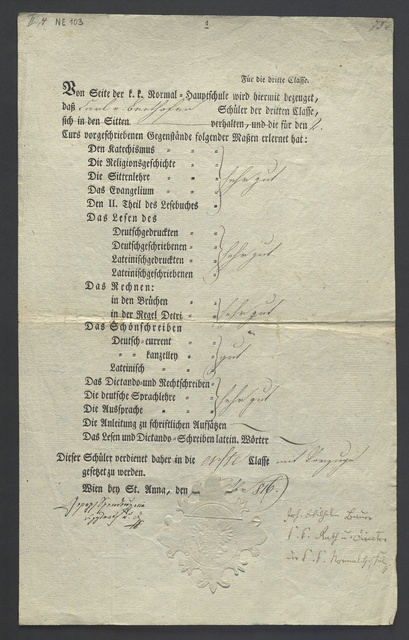 NE 103
1
Für die dritte Classe.
Von Seite der k. k. Normal-Hauptschule wird hiermit bezeuget,
daß Karl v. Beethoven Schüler der dritten Classe,
sich in den Sitten verhalten, und die für den
Curs vorgeschriebenen Gegenstände folgender Maßen erlernt hat:
Den Katechismus " "
Die Religionsgeschichte "
Die Sittenlehre " " sehr gut
Das Evangelium " "
Den II. Theil des Lesebuches "
Das Lesen des
Deutschgedruckten "
Deutschgeschriebenen " sehr gut
Lateinischgedruckten "
Lateinischgeschriebenen
Das Rechnen:
in den Brüchen "
in der Regel Detri " sehr gut
Das Schönschreiben
Deutsch-current "
" " kanzelley " gut
Lateinisch " "
Das Dictando- und Rechtschreiben
Die deutsche Sprachlehre " sehr gut
Die Aussprache " "
Die Anleitung zu schriftlichen Aufsätzen
Das Lesen und Dictando-Schreiben latein. Wörter
Dieser Schüler verdienet daher in die erste Classe mit Vorzuge
gesetzt zu werden.
Wien bey St. Anna, den 816
Jos. Bauer
k. k. Rath u. Director
der k. k. Normalschule